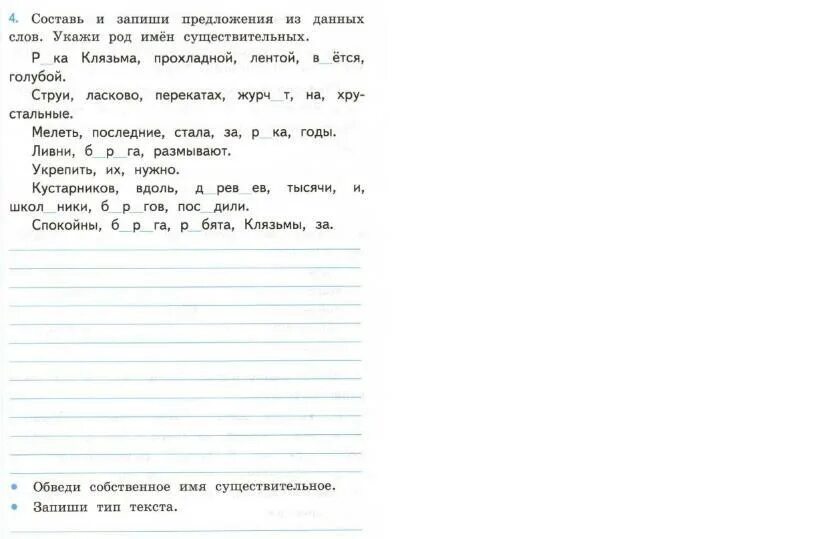 4. Составь и запиши предложения из данных
слов. Укажи род имён существительных.
Р_ка Клязьма, прохладной, лентой, в_ётся,
голубой.
Струи, ласково, перекатах, журч_т, на, хру-
стальные.
Мелеть, последние, стала, за, р_ка, годы.
Ливни, б_р_га, размывают.
Укрепить, их, нужно.
Кустарников, вдоль, д_рев_ев, тысячи, и,
школ_ники, б_р_гов, пос_дили.
Спокойны, б_р_га, р_бята, Клязьмы, за.
• Обведи собственное имя существительное.
• Запиши тип текста.